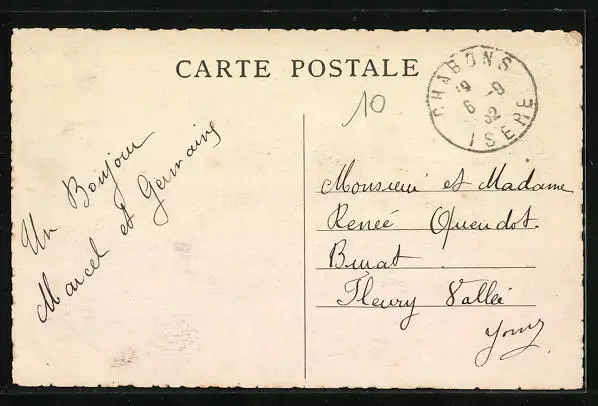 CARTE POSTALE
10
CHABONS
19 -9
6 32
ISERE
Un Bonjour
Marcel et Germaine
Monsieur et Madame
Renée Quendot.
Fleury Vallée
Yonne